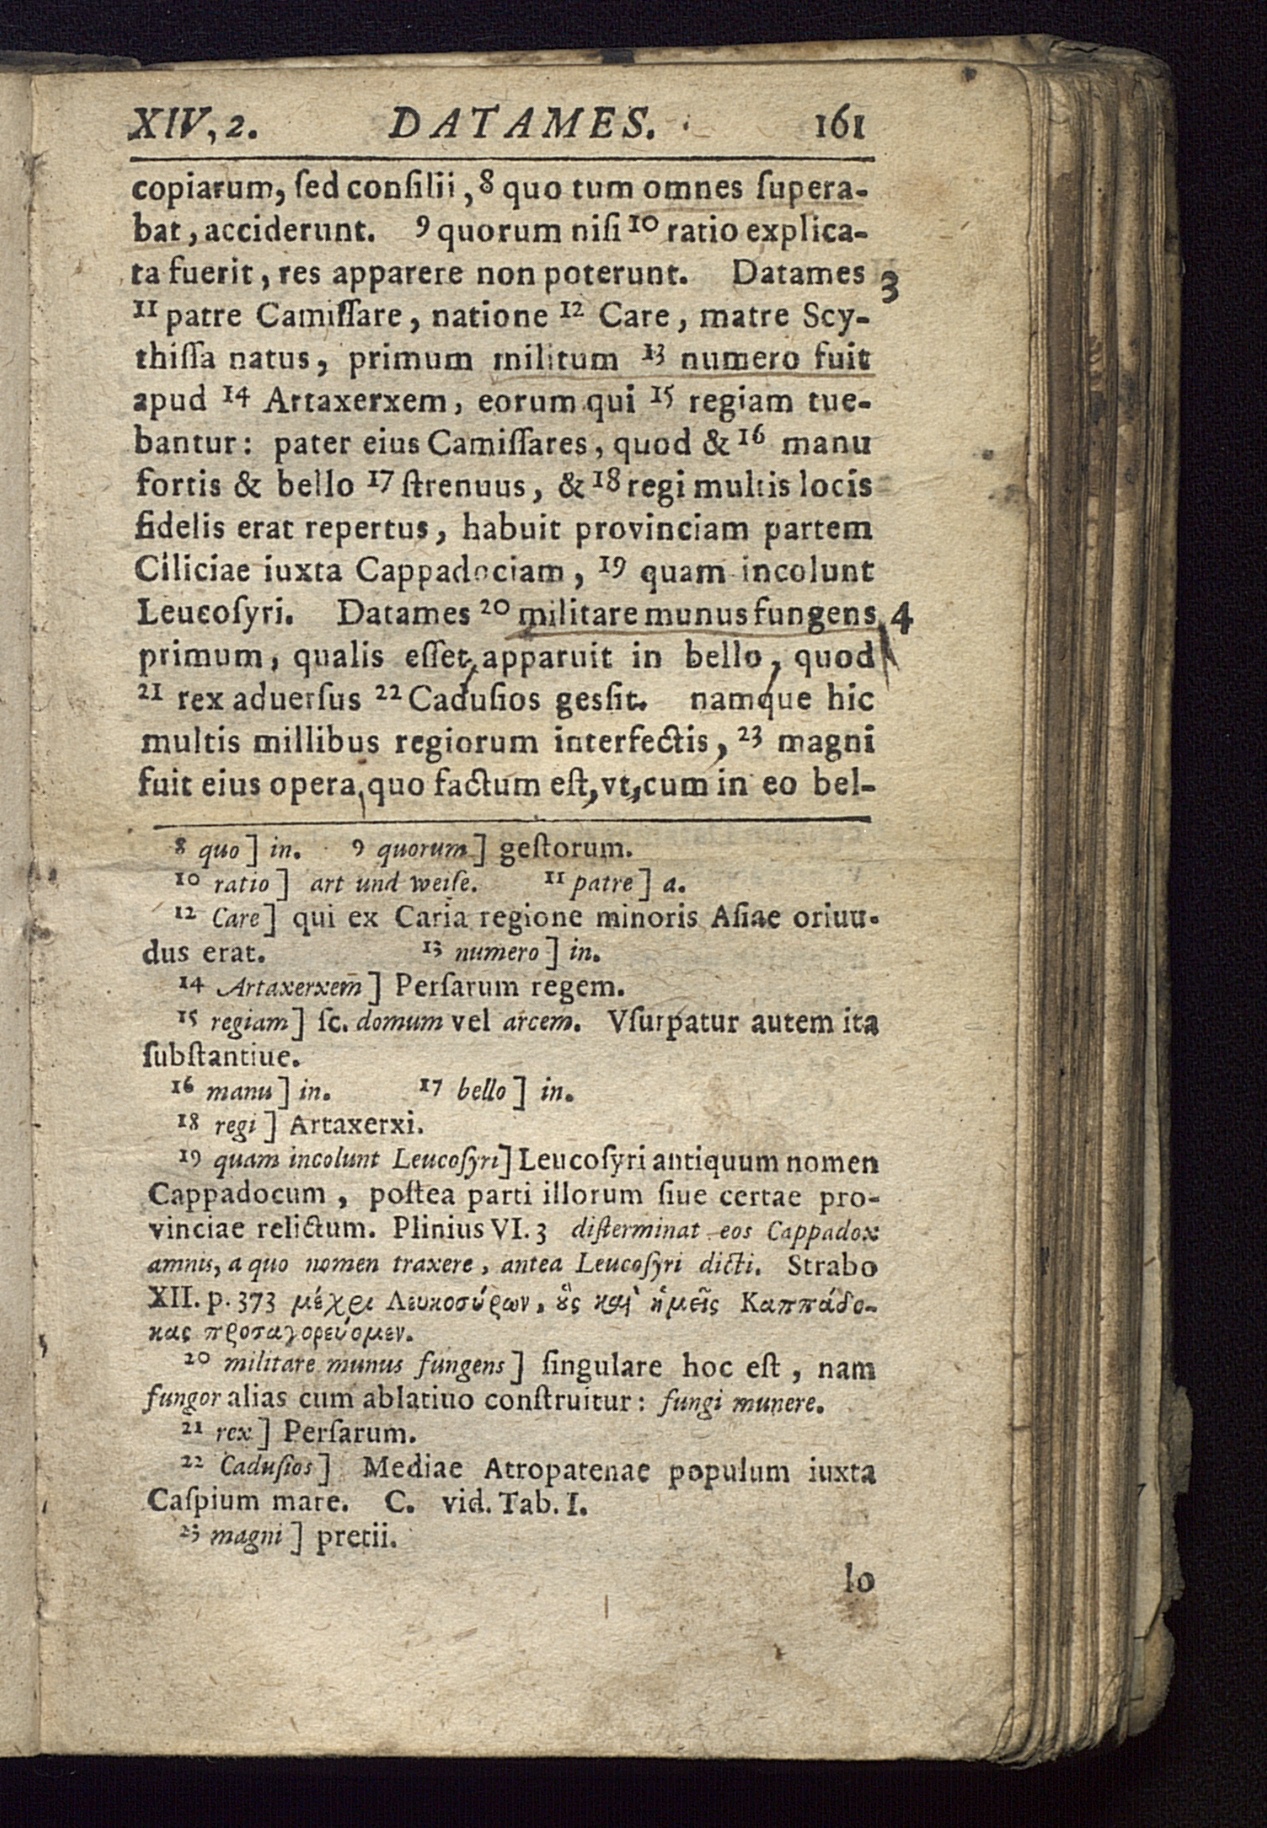 XIV, 2. DATAMES. 161
copiarum, ſed conſilii, 8 quo tum omnes ſupera-
bat, acciderunt. 9 quorum niſi 10 ratio explica-
ta fuerit, res apparere non poterunt. Datames 3
11 patre Camiſſare, natione 12 Care, matre Scy-
thiſſa natus, primum militum 13 numero fuit
apud 14 Artaxerxem, eorum qui 15 regiam tue-
bantur: pater eius Camiſſares, quod & 16 manu
fortis & bello 17 ſtrenuus, & 18 regi multis locis
fidelis erat repertus, habuit provinciam partem
Ciliciae iuxta Cappadociam, 19 quam incolunt
Leucoſyri. Datames 20 militare munus fungens, 4
primum, qualis eſſet, apparuit in bello, quod
21 rex aduerſus 22 Caduſios geſſit. namque hic
multis millibus regiorum interfectis, 23 magni
fuit eius opera, quo factum eſt, vt, cum in eo bel-
8 quo] in. 9 quorum] geſtorum.
10 ratio] art und weiſe. 11 patre] a.
12 Care] qui ex Caria regione minoris Aſiae oriuu-
dus erat. 13 numero] in.
14 Artaxerxem] Perſarum regem.
15 regiam] ſc. domum vel arcem. Vſurpatur autem ita
ſubſtantiue.
16 manu] in. 17 bello] in.
18 regi] Artaxerxi.
19 quam incolunt Leucoſyri] Leucoſyri antiquum nomen
Cappadocum, poſtea parti illorum ſiue certae pro-
vinciae relictum. Plinius VI. 3 diſterminat eos Cappadox
amnis, a quo nomen traxere, antea Leucoſyri dicti. Strabo
XII. p. 373 μέχρι Λευκοσύρων, ȣ̔̀ς καὶ ἡμεῖς Καππάδο-
κας προσαγορεύομεν.
20 militare munus fungens] ſingulare hoc eſt, nam
fungor alias cum ablatiuo conſtruitur: fungi munere.
21 rex] Perſarum.
22 Caduſios] Mediae Atropatenae populum iuxta
Caſpium mare. C. vid. Tab. I.
23 magni] pretii.
lo